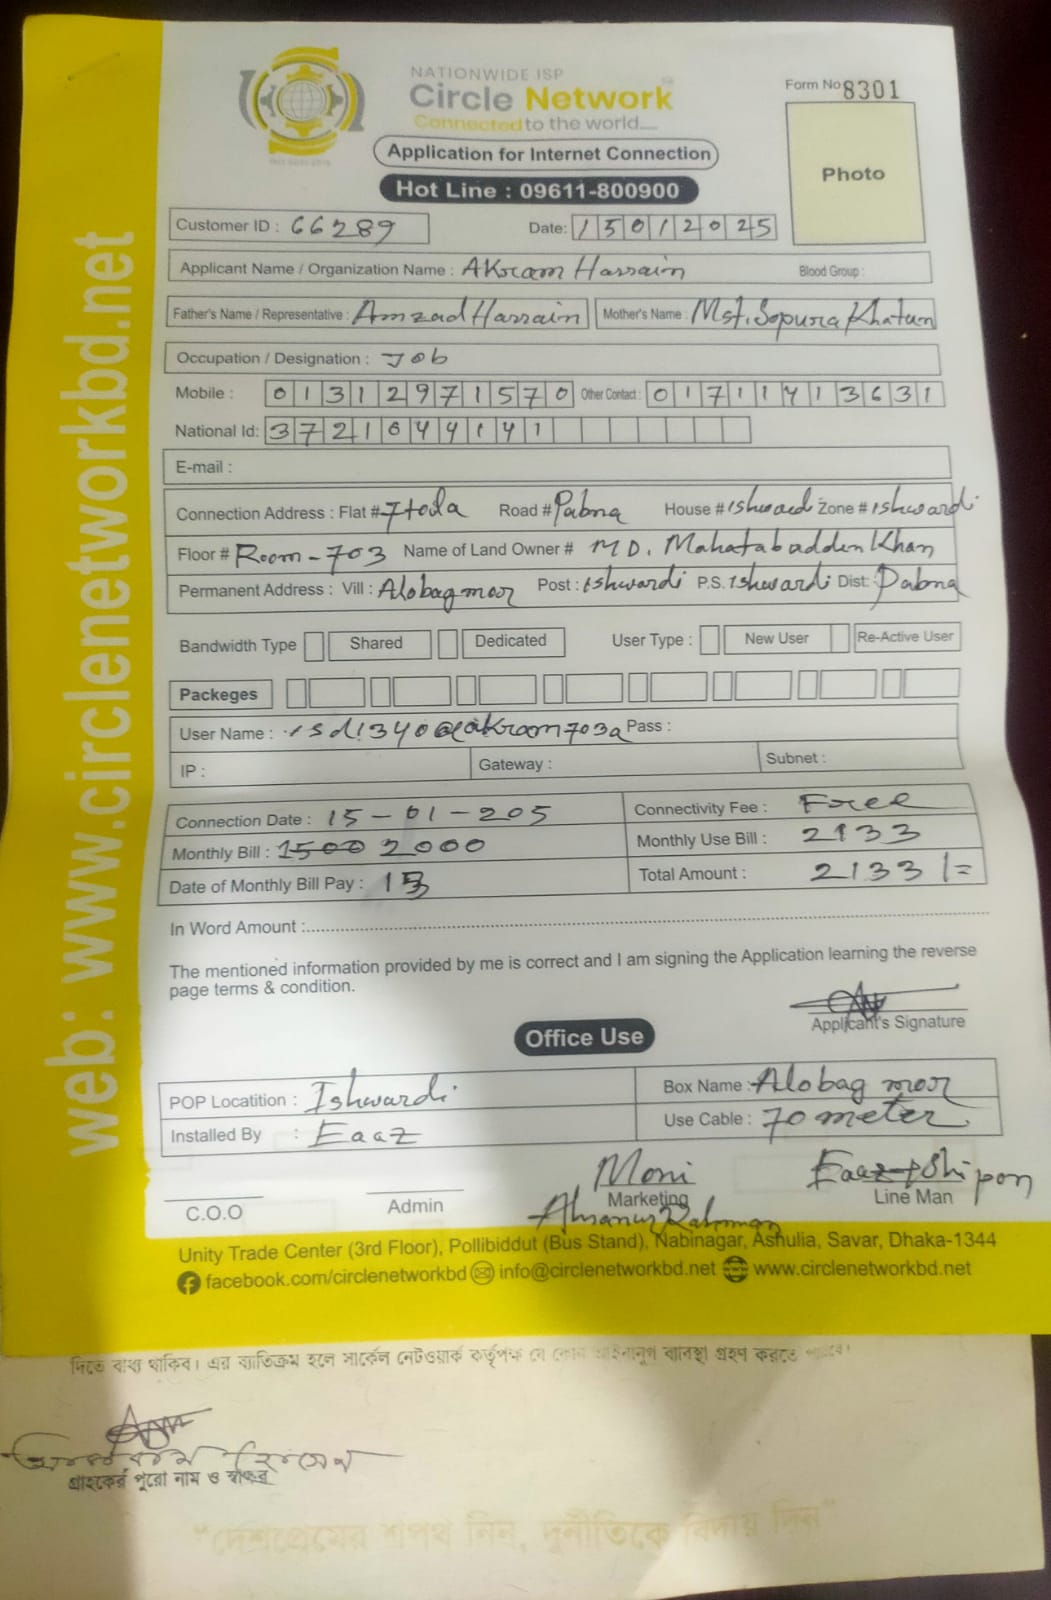 NATIONWIDE ISP
Circle Network
Connected to the world....
Form No 8301
Application for Internet Connection
Hot Line : 09611-800900
Photo
Customer ID : 66289 Date: 15012025
Applicant Name / Organization Name : Akram Hossain Blood Group :
Father's Name / Representative : Amzad Hossain Mother's Name : Mst. Sopura Khatun
Occupation / Designation : Job
Mobile : 01312971570 Other Contact : 01711413631
National Id: 3721644141
E-mail :
Connection Address : Flat # 7tola Road # Pabna House # Ishwardi Zone # Ishwardi
Floor # Room-703 Name of Land Owner # MD. Mahatabadden Khan
Permanent Address : Vill : Alobag mor Post : Ishwardi P.S. Ishwardi Dist: Pabna
Bandwidth Type Shared Dedicated User Type : New User Re-Active User
Packeges
User Name : Pass :
IP : Gateway : Subnet :
Connection Date : 15-01-205 Connectivity Fee : Free
Monthly Bill : 1500 2000 Monthly Use Bill : 2133
Date of Monthly Bill Pay : Total Amount : 2133/=
In Word Amount :
The mentioned information provided by me is correct and I am signing the Application learning the reverse
page terms & condition.
Applicant's Signature
Office Use
POP Locatition : Ishwardi Box Name : Alobag mor
Installed By : Eaaz Use Cable : 70 meter
Moni Eaaz+Shipon
C.O.O Admin Marketing Line Man
Ahsanur Rahman
Unity Trade Center (3rd Floor), Pollibiddut (Bus Stand), Nabinagar, Ashulia, Savar, Dhaka-1344
facebook.com/circlenetworkbd info@circlenetworkbd.net www.circlenetworkbd.net
web: www.circlenetworkbd.net
দিতে বাধ্য থাকিব। এর ব্যতিক্রম হলে সার্কেল নেটওয়ার্ক কর্তৃপক্ষ যে কোন আইনানুগ ব্যবস্থা গ্রহণ করতে পারবে।
আকরাম হোসেন
গ্রাহকের পুরো নাম ও স্বাক্ষর
"দেশপ্রেমের শপথ নিন, দুর্নীতিকে বিদায় দিন"